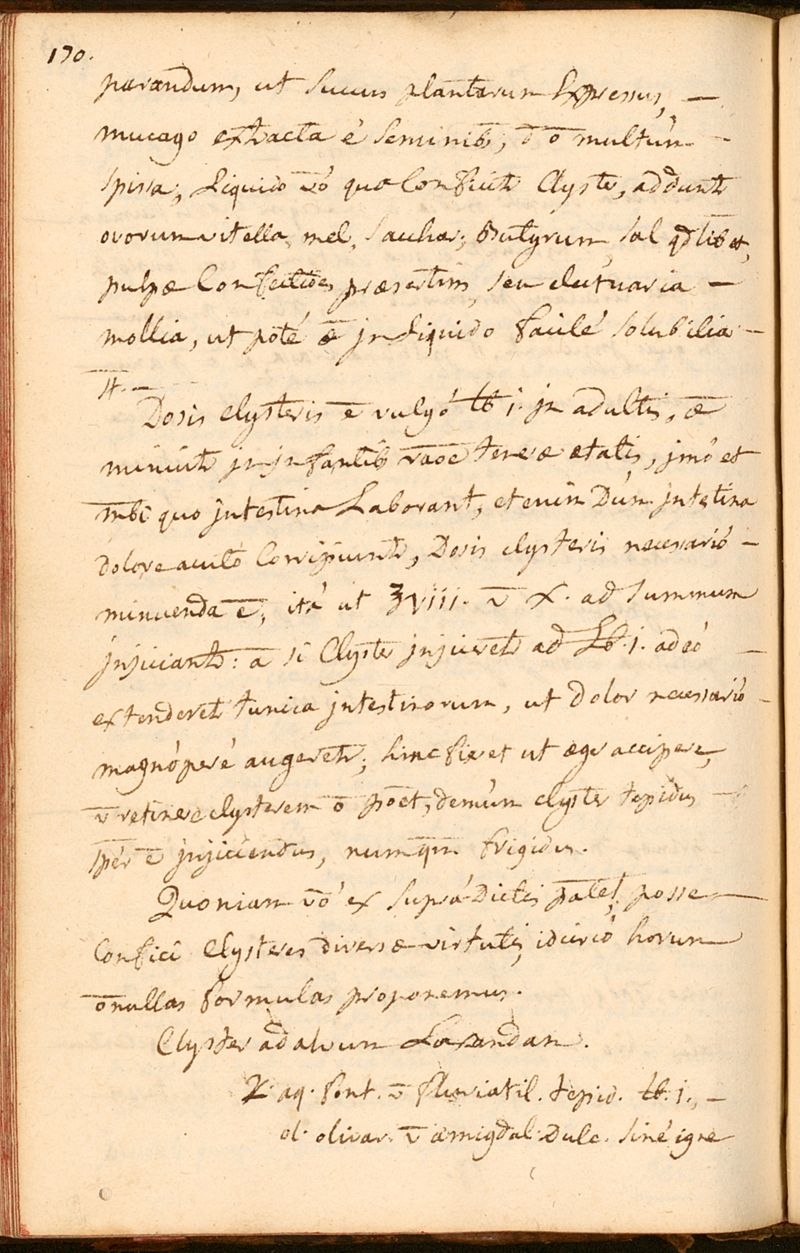 170.
parandum, ut succus plantarum Expressus, —
mucago extracta é Seminib, d̄ ō multúm —
spissa, Liquido v̄ó quo Conficitr Clyster, addunt
ovorum vitella, mel, Sacchar, Butyrum, Sal qdlibet,
pulpæ Confectiões præsertim, seu electuaria —
mollia, ut poté æ jn Liquido facilé Solubilia —
4. —
Dosis Clysteris ē vulgó ℔ j. jn adultis, æ
minuitr jn jnfantib raoe teneræ ætatis, jmó et
mbi quo jntestina Laborant, etenim Dúm jntestina
dolore acuto Corripiuntr, Dosis clysteris necessarió —
minuenda ē, itá ut ℥viii. v̄ X. ad Summum
jnjiciantr: ā si Clyster jnjiceretr ad ℔. j. adeó —
extenderetr tunica jntestinorum, ut Dolor necessarió —
magnóperé augeretr; hinc fieret ut æger accipere,
v̄ retinere clysterem ō pōēt, demúm clyster tepidus —
spér ē jnjiciendus, numqm frigidus.
Quoniam v̄ó ex Suprá Dictis patet, posse —
Confici Clysteres diversæ virtutis, idcircó horum
ōnullas formulas proponemus.
Clyster ad alvum Laxandam.
℞. aq. font. v̄ fluviatil. tepid. ℔. j., —
ol. olivar. v̄ amigdal. Dulc. Siné igne